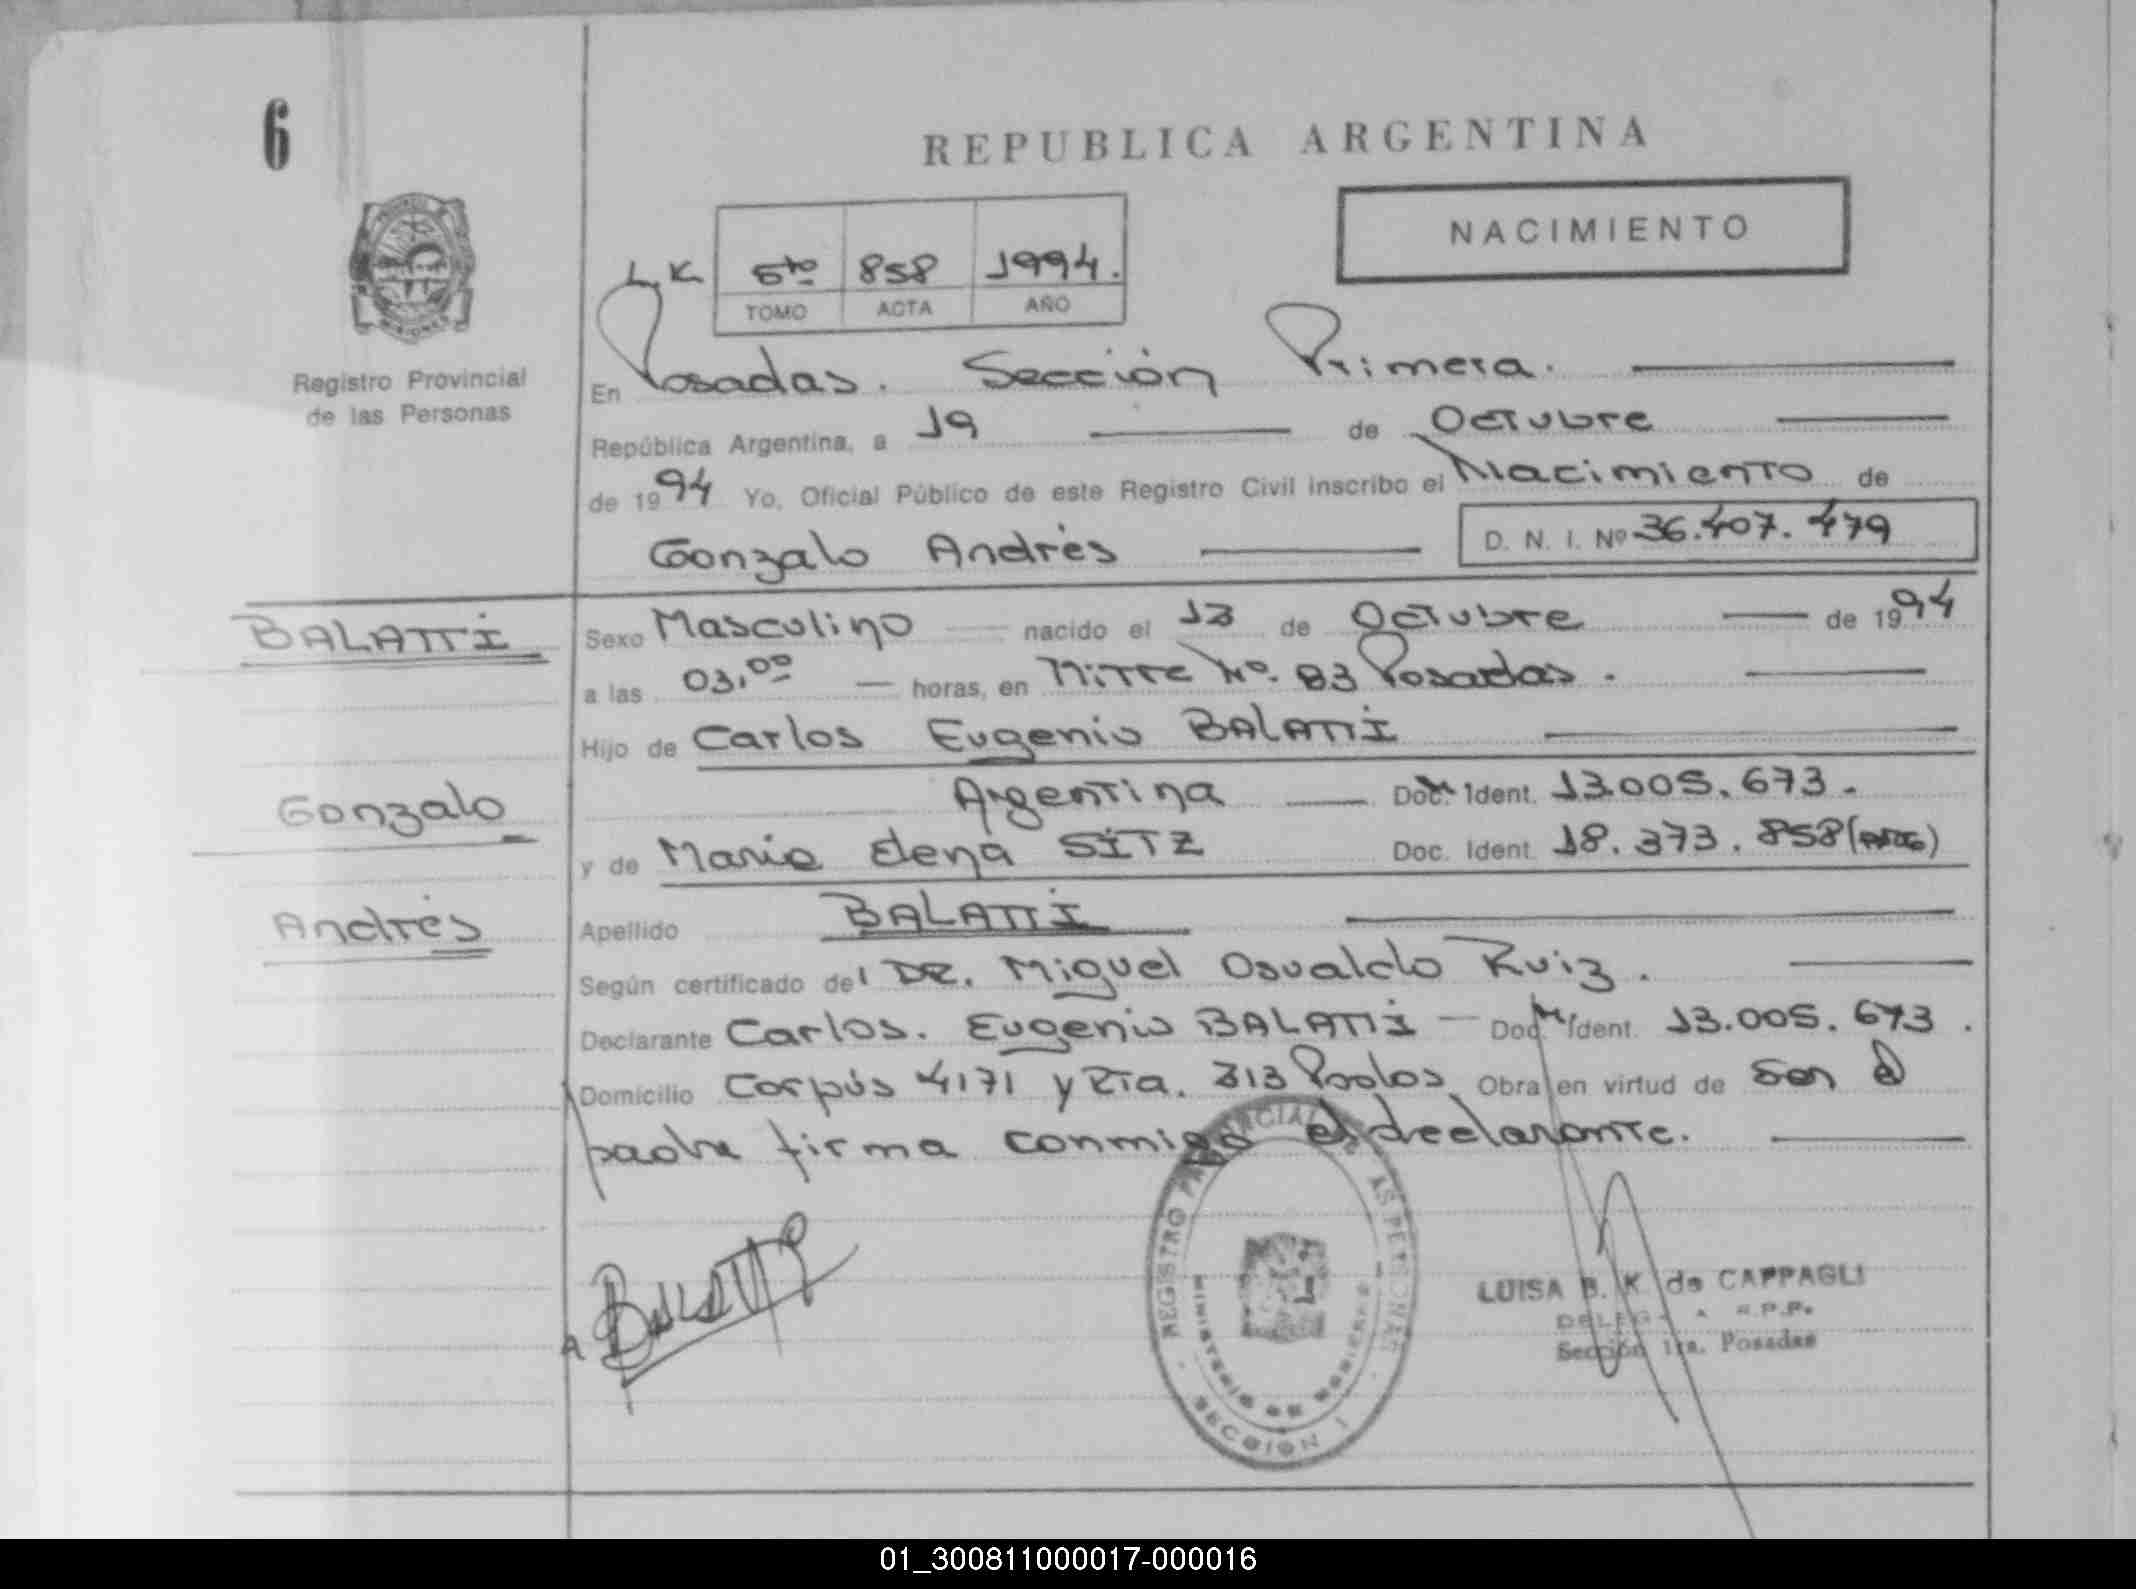 6
REPUBLICA ARGENTINA
NACIMIENTO
L.K 5to 858 1994.
TOMO ACTA AÑO
Registro Provincial
de las Personas
En Posadas. Sección Primera.
República Argentina, a 19 de Octubre
de 1994 Yo, Oficial Público de este Registro Civil inscribo el Nacimiento de
Gonzalo Andrés D. N. I. Nº 36.407.479
BALATTI
Gonzalo
Andrés
Sexo Masculino nacido el 13 de Octubre de 1994
a las 03,00 horas, en Mitre Nº. 83 Posadas.
Hijo de Carlos Eugenio BALATTI
Argentina Doc. Ident. 13.005.673.
y de María Elena SITZ Doc. Ident. 18.373.858
Apellido BALATTI
Según certificado del DR. Miguel Osvaldo Ruiz.
Declarante Carlos. Eugenio BALATTI Doc. Ident. 13.005.673.
Domicilio Corpús 4171 y Rta. 213 Obra en virtud de Ser el
padre firma conmigo el declarante.
BALATTI
REGISTRO PROVINCIAL DE LAS PERSONAS
MINISTERIO DE GOBIERNO
SECCION 1
LUISA B. K. de CAPPAGLI
DELEGADA R.P.P.
Sección 1ra. Posadas
01_300811000017-000016